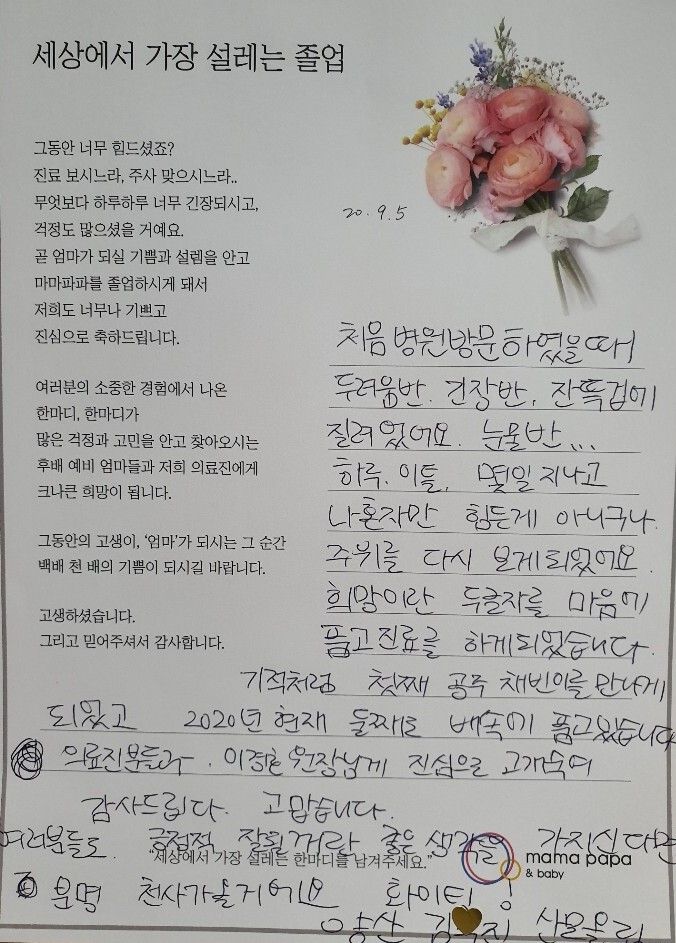 세상에서 가장 설레는 졸업
그동안 너무 힘드셨죠?
진료 보시느라, 주사 맞으시느라..
무엇보다 하루하루 너무 긴장되시고,
걱정도 많으셨을 거예요.
곧 엄마가 되실 기쁨과 설렘을 안고
마마파파를 졸업하시게 돼서
저희도 너무나 기쁘고
진심으로 축하드립니다.
여러분의 소중한 경험에서 나온
한마디, 한마디가
많은 걱정과 고민을 안고 찾아오시는
후배 예비 엄마들과 저희 의료진에게
크나큰 희망이 됩니다.
그동안의 고생이, '엄마'가 되시는 그 순간
백배 천 배의 기쁨이 되시길 바랍니다.
고생하셨습니다.
그리고 믿어주셔서 감사합니다.
20.9.5
처음 병원방문하였을때
두려움반. 긴장반. 잔뜩겁에
질려있어요. 눈물반...
하루. 이틀. 몇일 지나고
나혼자만 힘든게 아니구나.
주위를 다시 보게되었어요.
희망이란 두글자를 마음에
품고진료를 하게되었습니다.
기적처럼 첫째 공주 채빈이를 만나게
되었고 2020년 현재 둘째도 배속에 품고있습니다
의료진분들과. 원장님께 진심으로 고개숙여
감사드립니다. 고맙습니다.
여러분들도 긍정적 잘될꺼란 좋은 생각을 가지신다면
"세상에서 가장 설레는 한마디를 남겨주세요."
mama papa
& baby
분명 천사가올거에요 화이팅!
양산 김 지 산모올림